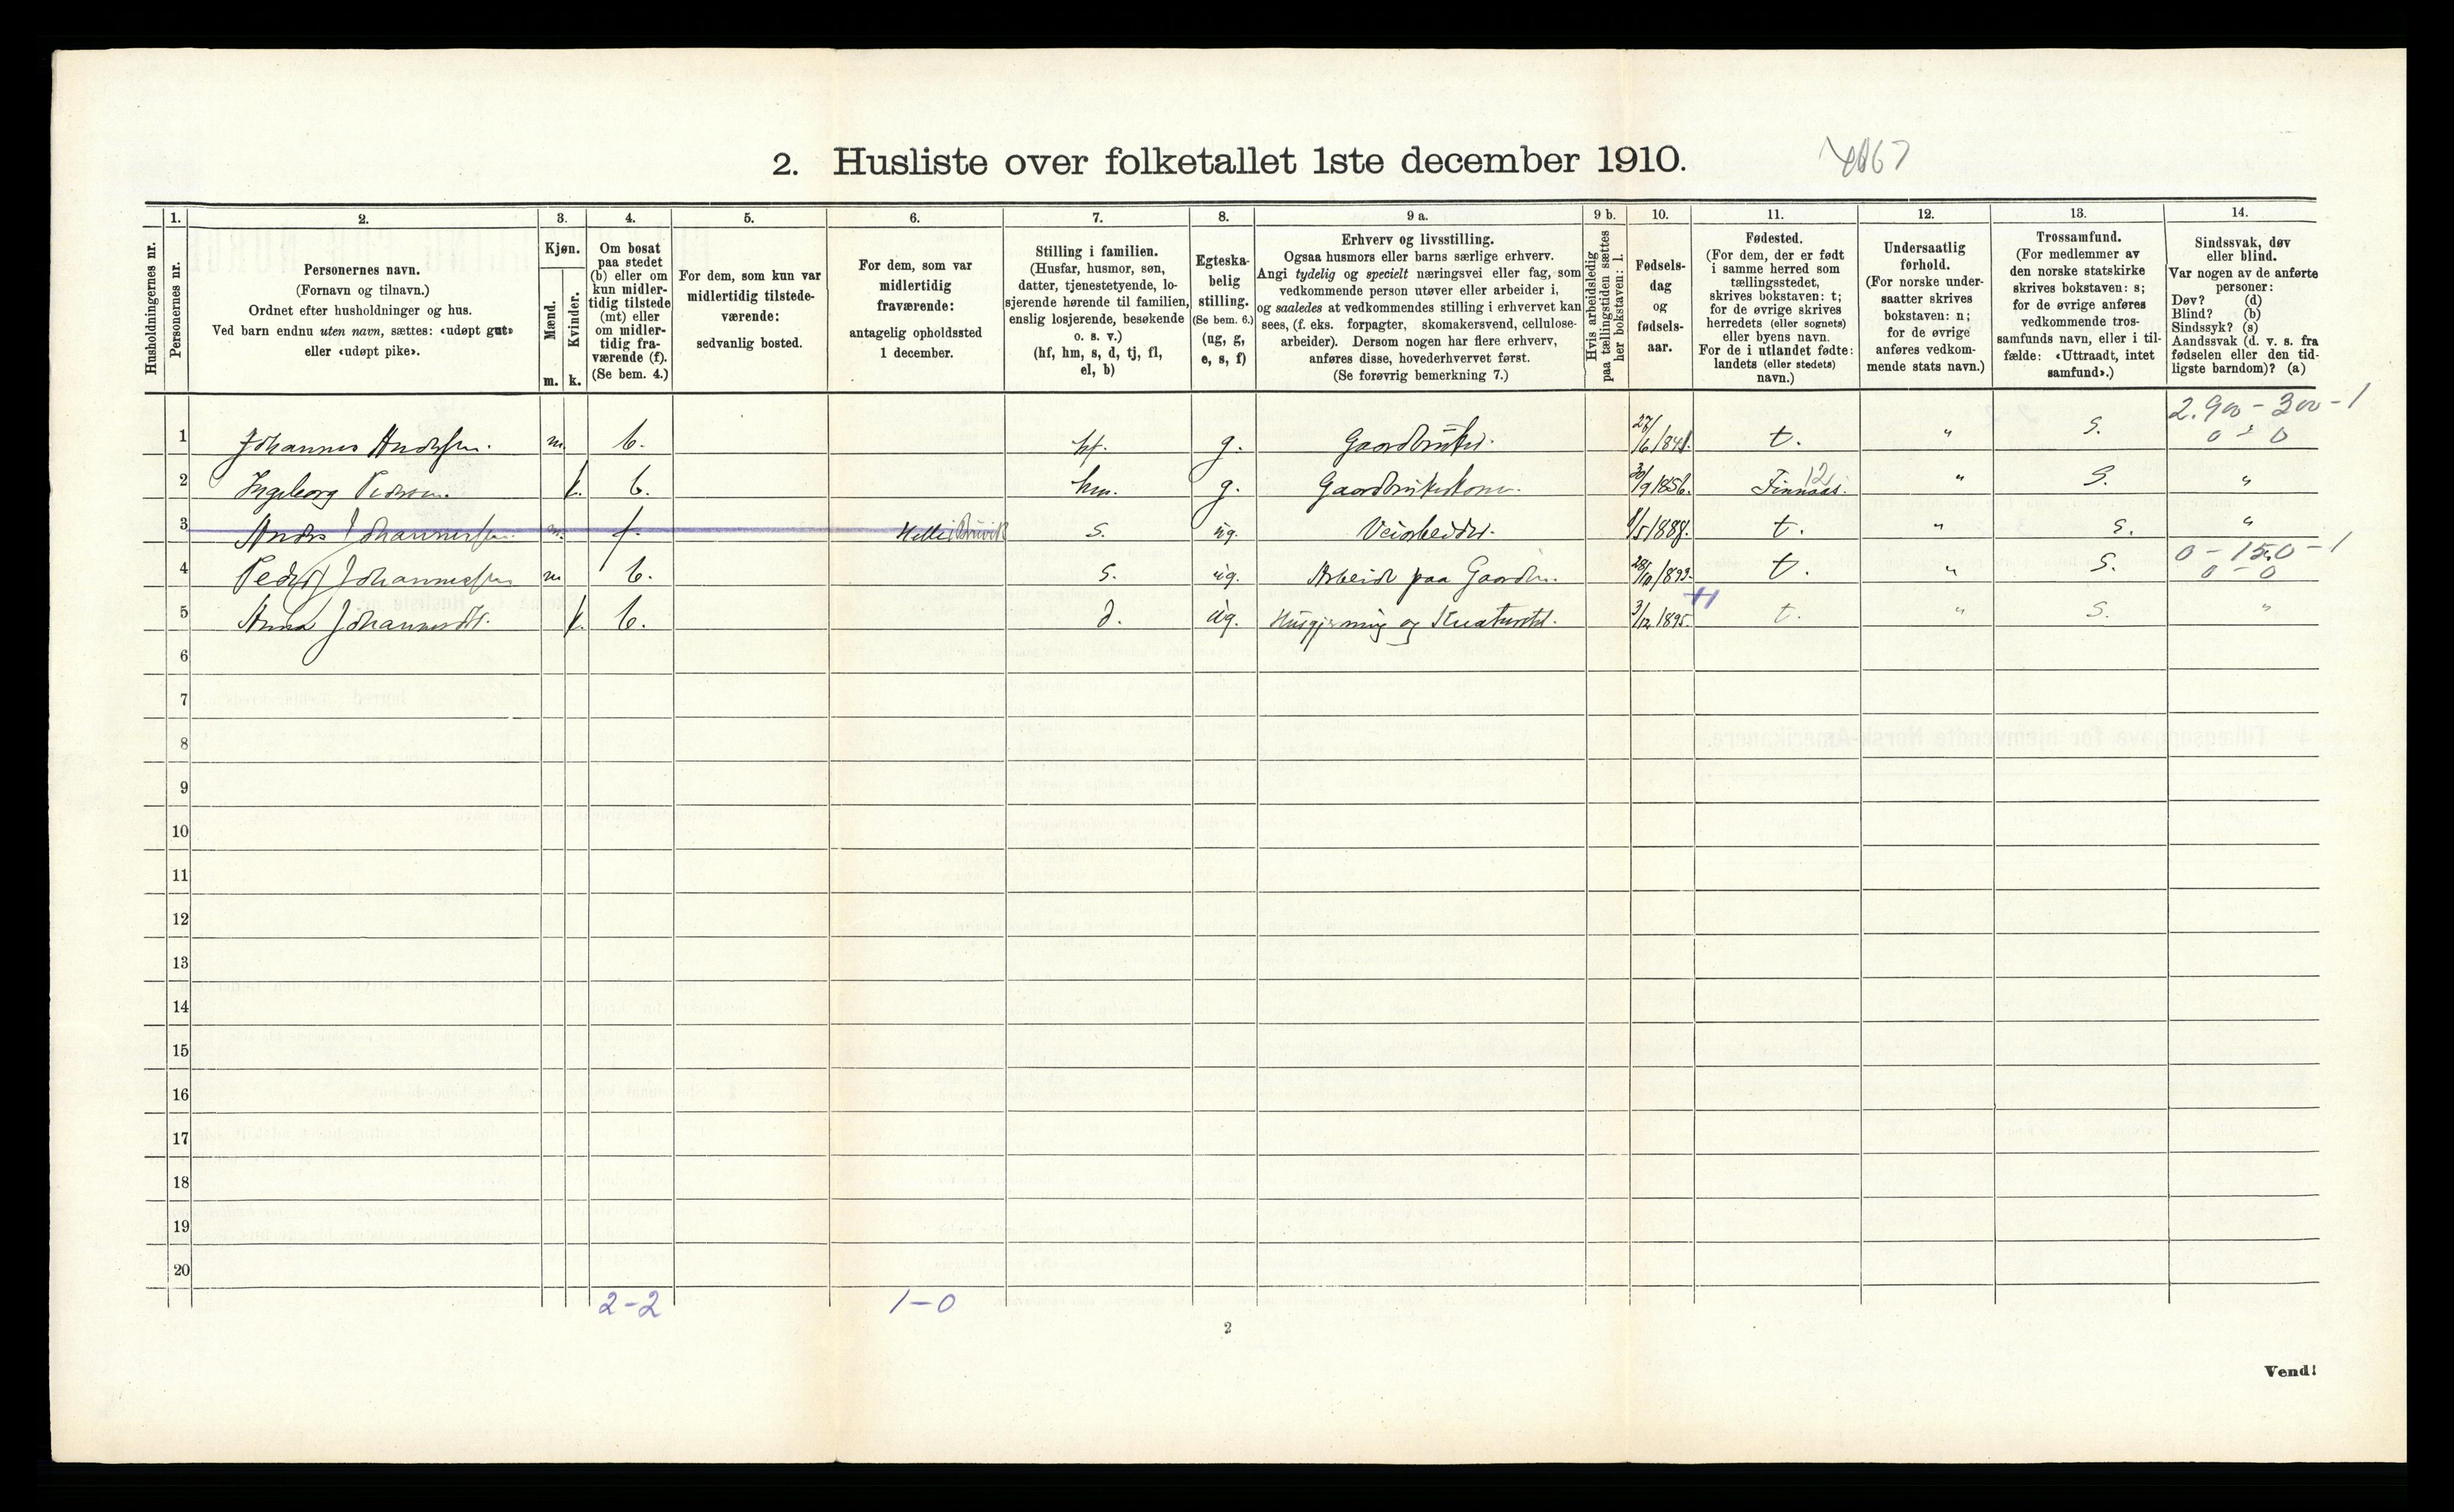 2. Husliste over folketallet 1ste december 1910.
1. 2. 3. 4. 5. 6. 7. 8. 9 a. 9 b. 10. 11. 12. 13. 14.
Husholdningernes nr.
Personernes nr.
Personernes navn.
(Fornavn og tilnavn.)
Ordnet efter husholdninger og hus.
Ved barn endnu uten navn, sættes: «udøpt gut»
eller «udøpt pike».
Kjøn.
Mænd.
Kvinder.
m. k.
Om bosat
paa stedet
(b) eller om
kun midler-
tidig tilstede
(mt) eller
om midler-
tidig fra-
værende (f).
(Se bem. 4.)
For dem, som kun var
midlertidig tilstede-
værende:
sedvanlig bosted.
For dem, som var
midlertidig
fraværende:
antagelig opholdssted
1 december.
Stilling i familien.
(Husfar, husmor, søn,
datter, tjenestetyende, lo-
sjerende hørende til familien,
enslig losjerende, besøkende
o. s. v.)
(hf, hm, s, d, tj, fl,
el, b)
Egteska-
belig
stilling.
(Se bem. 6.)
(ug, g,
e, s, f)
Erhverv og livsstilling.
Ogsaa husmors eller barns særlige erhverv.
Angi tydelig og specielt næringsvei eller fag, som
vedkommende person utøver eller arbeider i,
og saaledes at vedkommendes stilling i erhvervet kan
sees, (f. eks. forpagter, skomakersvend, cellulose-
arbeider). Dersom nogen har flere erhverv,
anføres disse, hovederhvervet først.
(Se forøvrig bemerkning 7.)
Hvis arbeidsledig
paa tællingstiden sættes
her bokstaven: l.
Fødsels-
dag
og
fødsels-
aar.
Fødested.
(For dem, der er født
i samme herred som
tællingsstedet,
skrives bokstaven: t;
for de øvrige skrives
herredets (eller sognets)
eller byens navn.
For de i utlandet fødte:
landets (eller stedets)
navn.)
Undersaatlig
forhold.
(For norske under-
saatter skrives
bokstaven: n;
for de øvrige
anføres vedkom-
mende stats navn.)
Trossamfund.
(For medlemmer av
den norske statskirke
skrives bokstaven: s;
for de øvrige anføres
vedkommende tros-
samfunds navn, eller i til-
fælde: «Uttraadt, intet
samfund».)
Sindssvak, døv
eller blind.
Var nogen av de anførte
personer:
Døv? (d)
Blind? (b)
Sindssyk? (s)
Aandssvak (d. v. s. fra
fødselen eller den tid-
ligste barndom)? (a)
2.900 - 300 - 1
1 Johannes Andersen. m. b. hf. g. Gaardbruker. 27/6 1841. t. " S. 0 - 0
2 Ingeborg Pedersen. k. b. hm. g. Gaardbrukerkone. 30/9 1856. Finnaas. 12 " S. "
3 Anders Johannessen. m. f. s. ug. Veiarbeider. 1/5 1888. t. " S. "
0 - 150 - 1
4 Peder J Johannessen m b. s. ug. Arbeide paa Gaarden. 28/10 1893. t. " S. 0 - 0
5 Anna Johannesdt. k. b. d. ug. Husgjerning og Kreaturstel. 3/12 1895. t. " S. "
6
7
8
9
10
11
12
13
14
15
16
17
18
19
20
2-2 1-0
2
Vend!